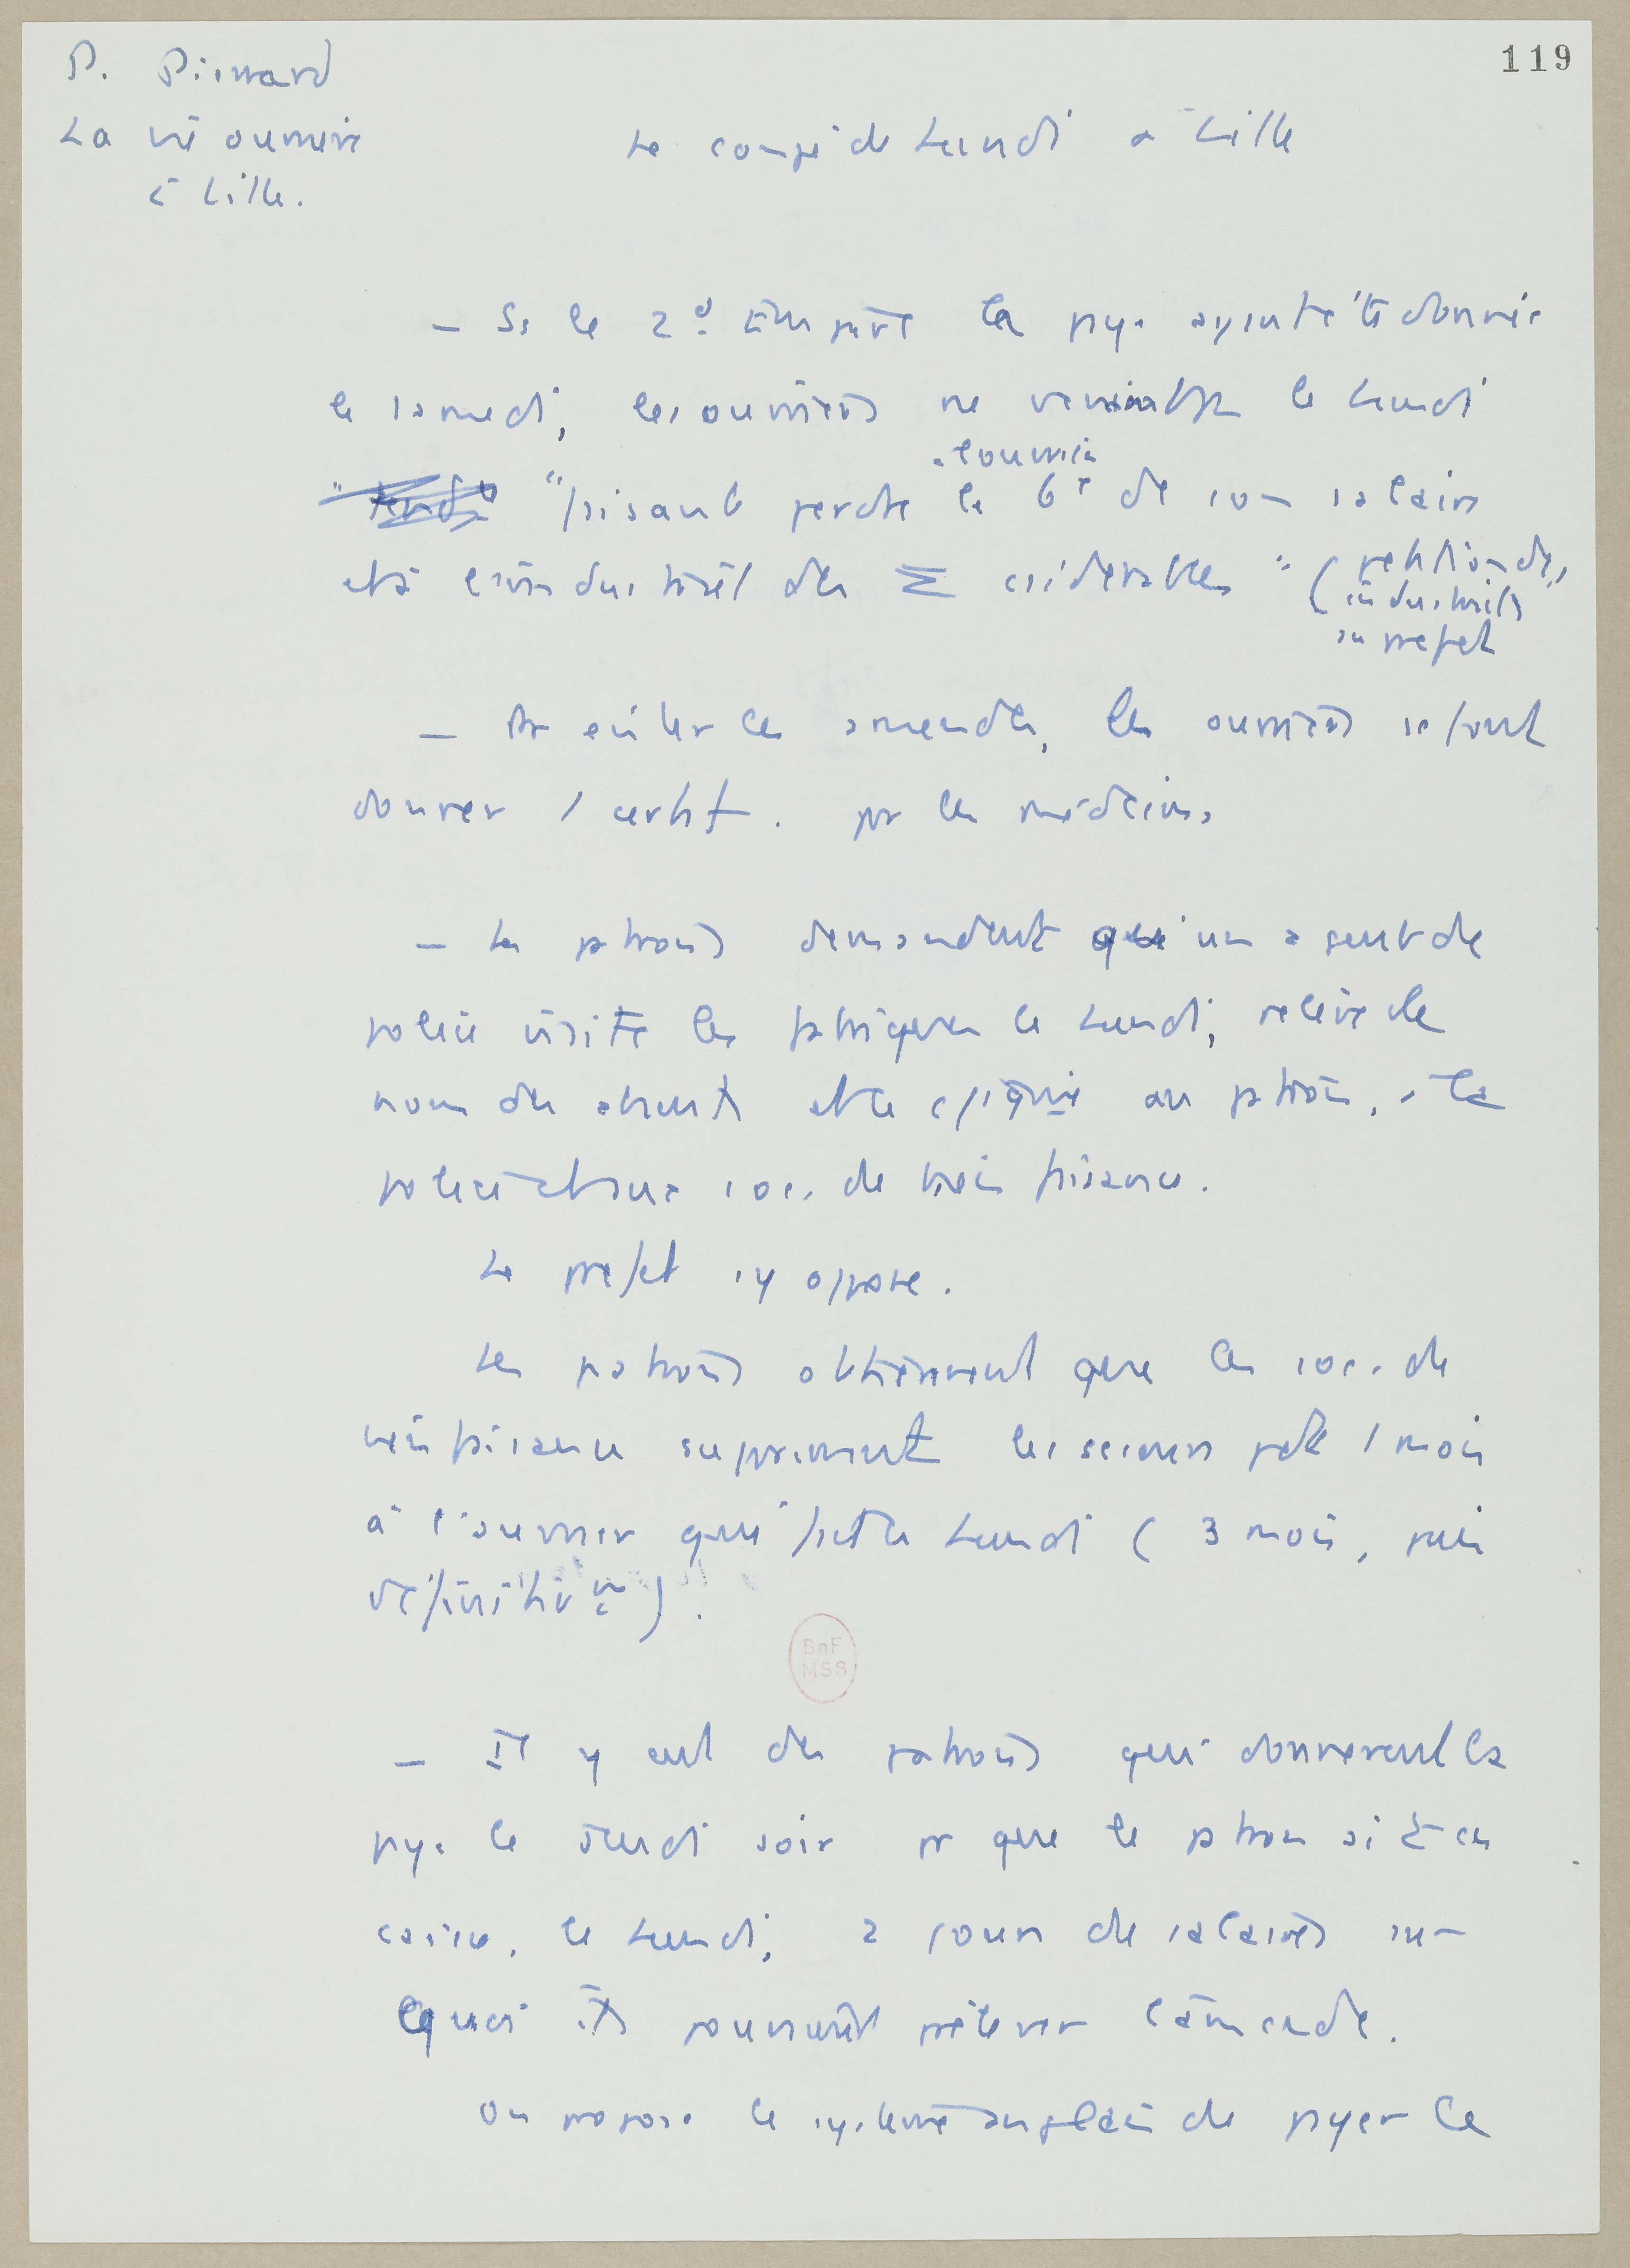 119
P. Pierrard
La vie ouvrière
à Lille.
Le congé de Lundi à Lille
— Ss le 2d Empire la paye ayant été donnée
le samedi, les ouvriers ne venaient pas le Lundi
"faisant perdre à l'ouvrier le 6e de son salaire
et à l'industriel des Σ csidérables" (pétition des
industriels
au préfet
— Pr éviter les amendes, les ouvriers se font
donner 1 certif. par les médecins
— Les patrons demandent qu'un agent de
police visite les fabriques le Lundi, relève le
nom des absents et le csigne au patron, à la
police et aux soc. de bienfaisance.
Le préfet s'y oppose.
Les patrons obtiennent que les soc. de
bienfaisance suppriment les secours pdt 1 mois
à l'ouvrier qui fait le Lundi (3 mois, puis
définitivt).
— Il y eut des patrons qui donnèrent la
paye le Jeudi soir pr que le patron ait en
caisse, le Lundi, 2 jours de salaires sur
lequel ils pourraient prélever l'amende.
On propose le système anglais de payer le
BnF
MSS